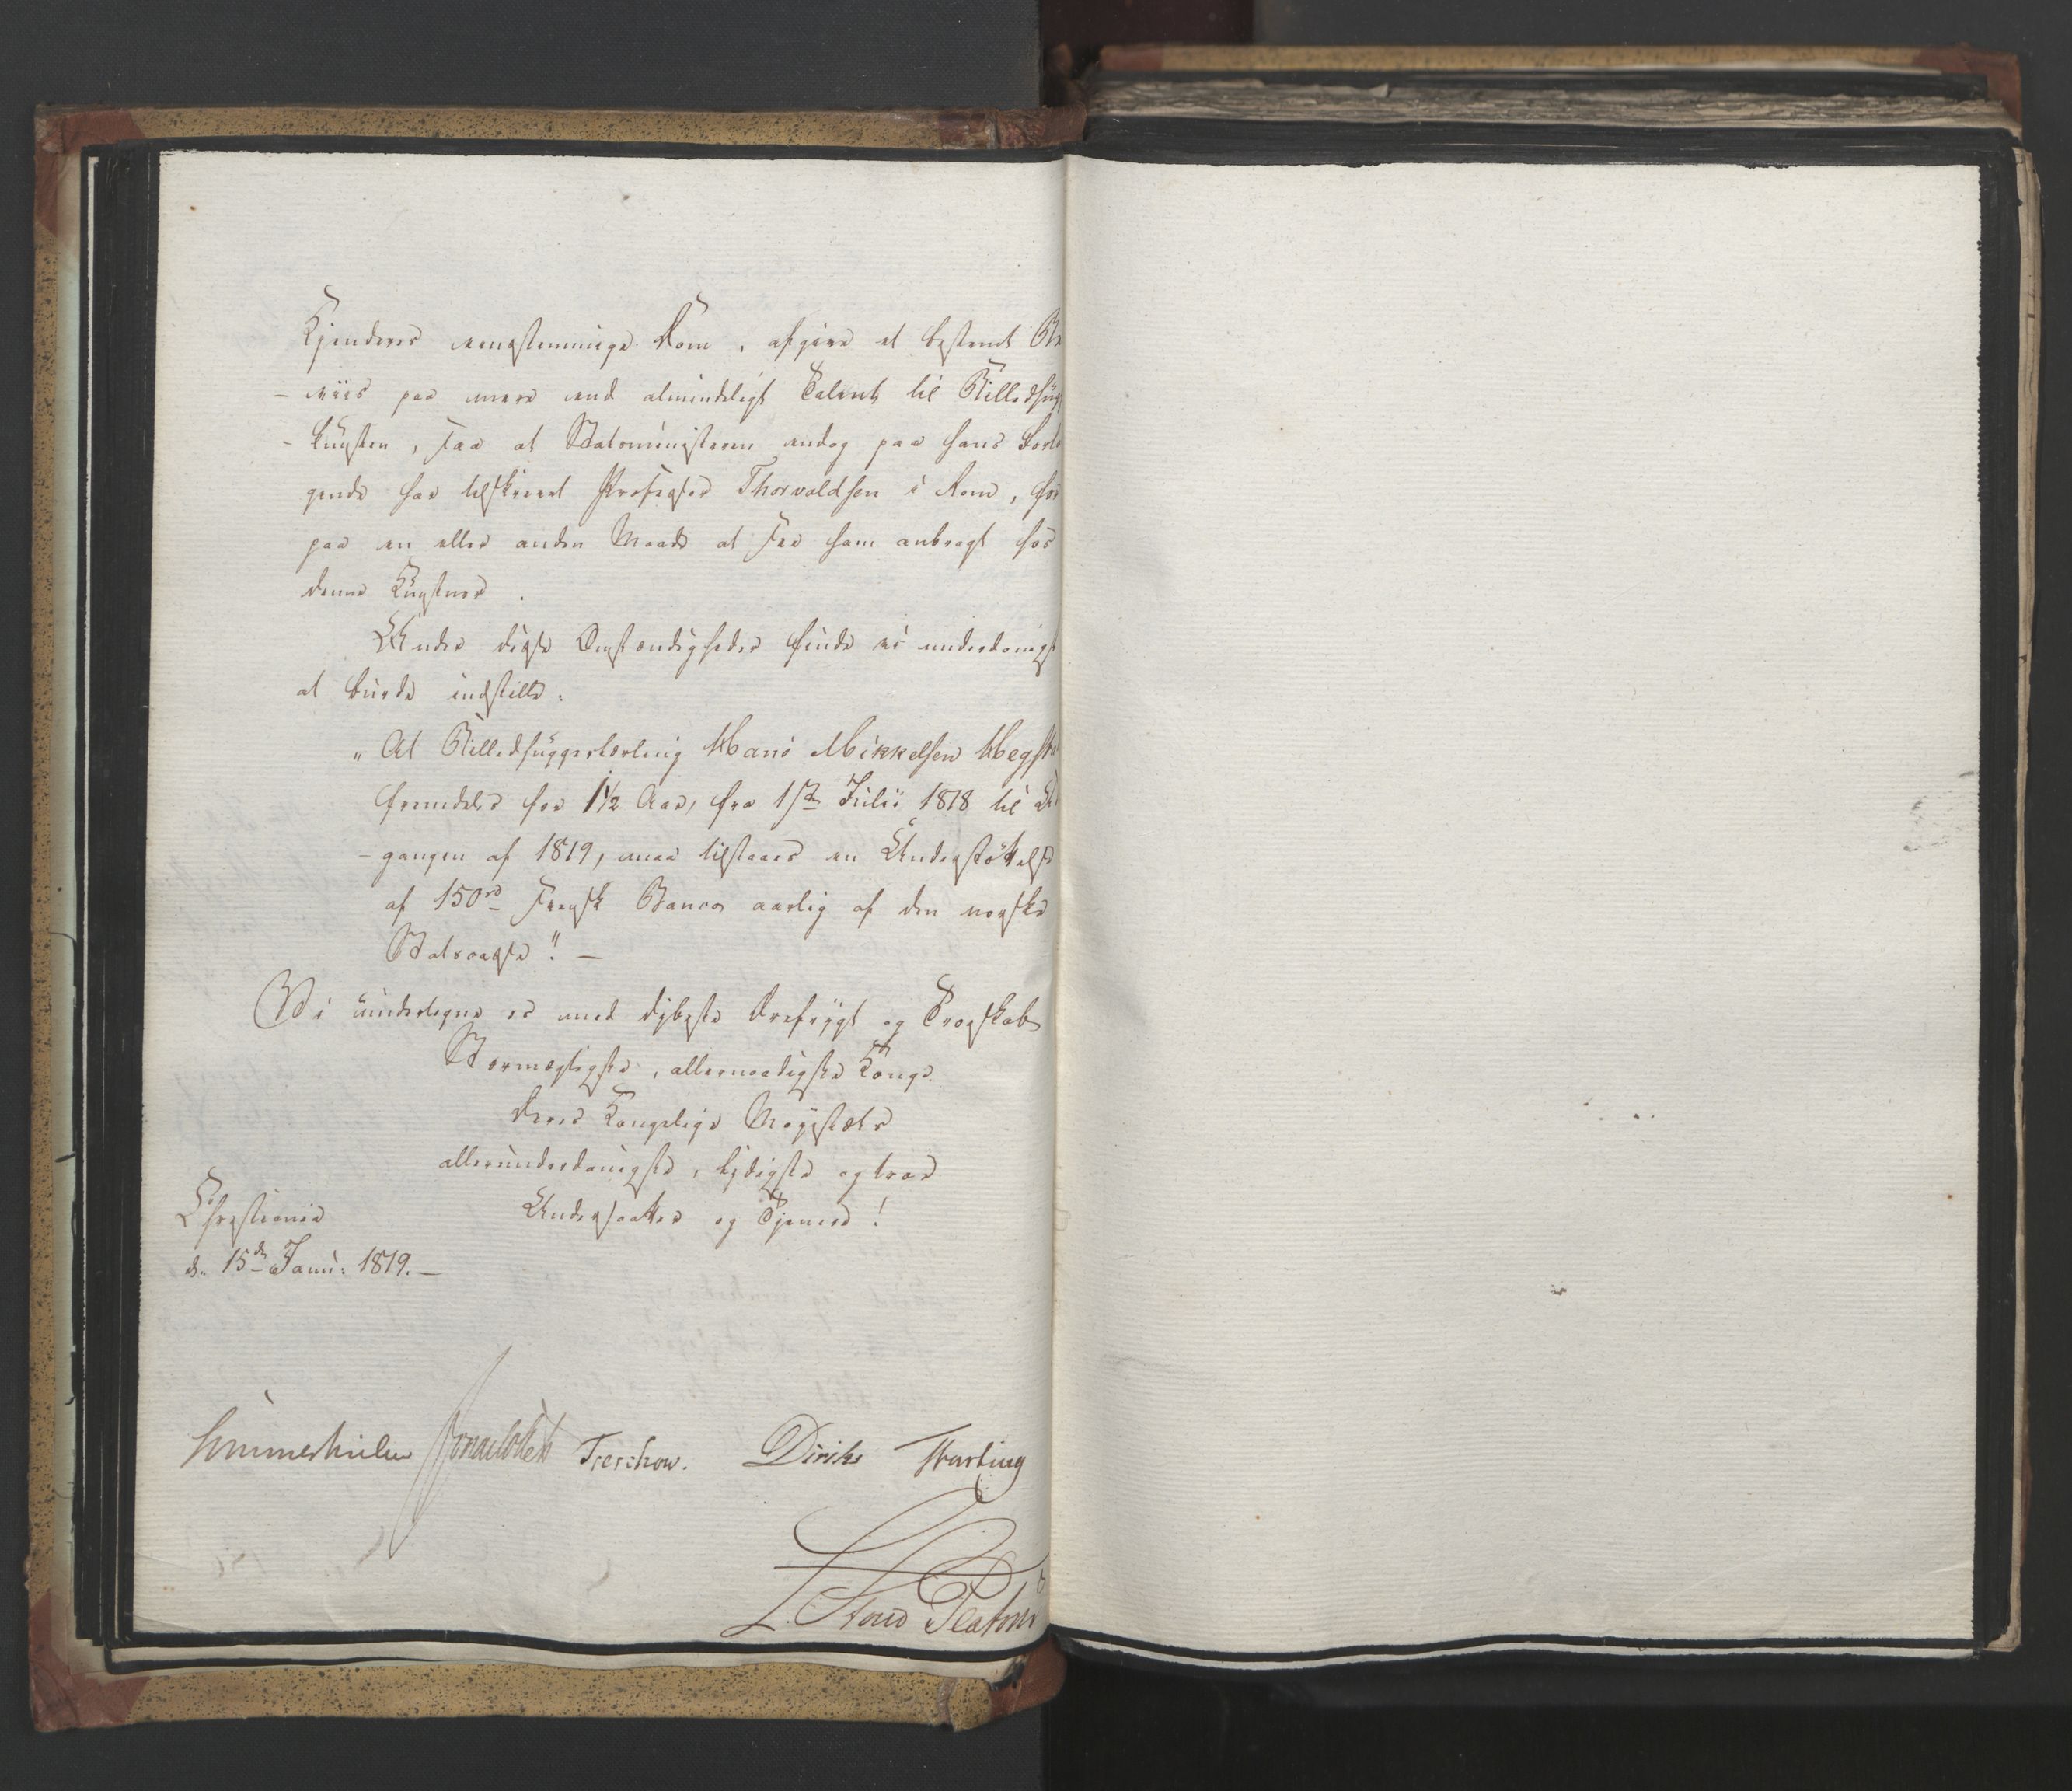 Kjenderes eenstemmige Dom, afgive et bestemt Be
- viis paa mere end almindeligt Talent til Billedhug
- kunsten, saa at Statsministeren endog paa hans Forla
gende har tilskrevet Professor Thorvaldsen i Rom, for
paa en eller anden Maade at see ham anbragt hos
denne Kunstner.
Under disse Omstændigheder finde vi underdanigst
at burde indstille:
"At Billedhuggerlærling Hans Mikkelsen
fremdeles for 1½ Aar, fra 1ste Julii 1818 til Ud
- gangen af 1819, maa tilstaaes en Understøttelse
af 150rd Svensk Banco aarlig af den norske
Statscasse". —
Vi undertegne os med dybeste Ærefrygt og Troskab
Stormægtigste, allernaadigste Konge
Deres Kongelige Majestæts
allerunderdanigste, lydigste og troe
Undersaatter og Tjenere!
Christiania
d. 15de Janu: 1819. —
Sommerhielm Treschow. Diriks Motzfeldt
L. Stoud Platou